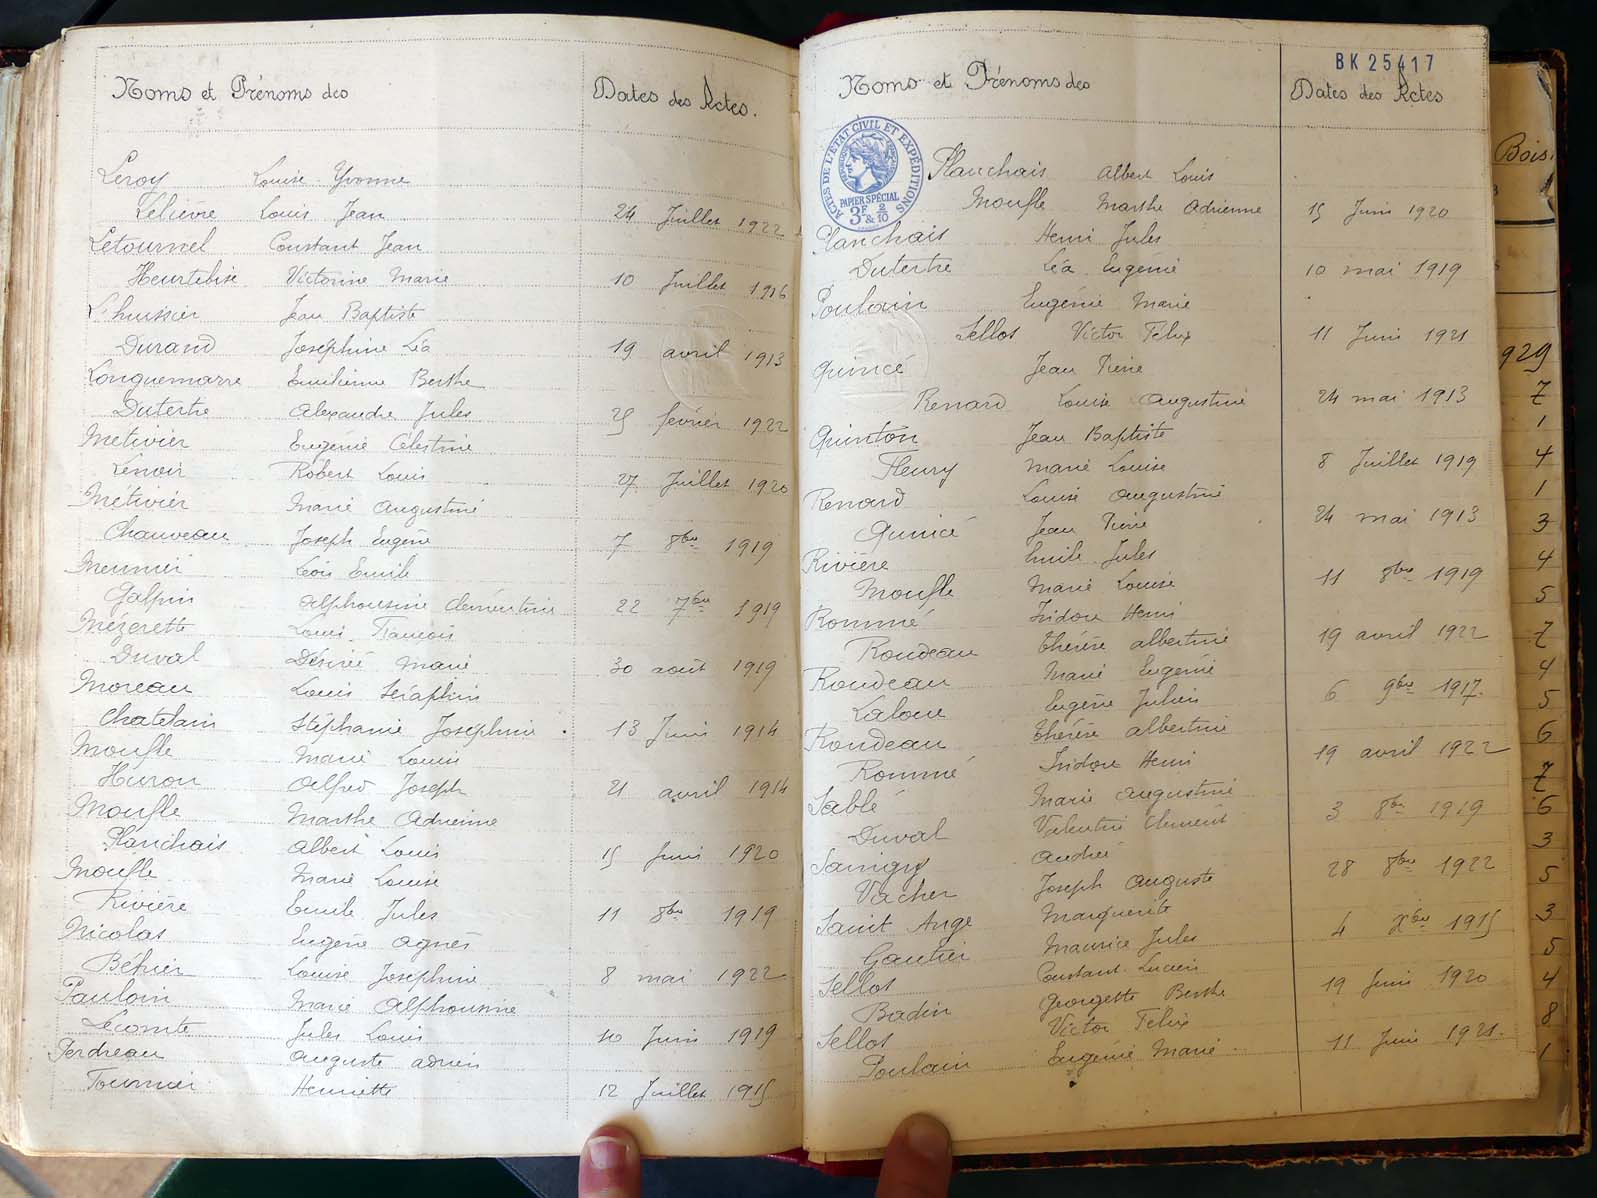 Noms et Prénoms des Dates des Actes.
Leroy Louise Yvonne
Lelièvre Louis Jean 24 Juillet 1922
Letournel Constant Jean
Heurtebise Victorine Marie 10 Juillet 1916
Lhuissier Jean Baptiste
Durand Joséphine Léa 19 avril 1913
Longuemarre Emilienne Berthe
Dutertre Alexandre Jules 25 février 1922
Métivier Eugénie Célestine
Lenoir Robert Louis 27 Juillet 1920
Métivier Marie Augustine
Chauveau Joseph Eugène 7 8bre 1919
Meunier Léon Emile
Galpin Alphonsine Clémentine 22 7bre 1919
Mézerette Louis François
Duval Désirée Marie 30 août 1919
Moreau Louis Séraphin
Chatelain Stéphanie Joséphine 13 Juin 1914
Moufle Marie Louise
Huron Alfred Joseph 21 avril 1914
Moufle Marthe Adrienne
Planchais Albert Louis 15 Juin 1920
Moufle Marie Louise
Rivière Emile Jules 11 8bre 1919
Nicolas Eugène Agnès
Behier Louise Joséphine 8 mai 1922
Paulouin Marie Alphonsine
Lecomte Jules Louis 10 Juin 1919
Perdreau Auguste Adrien
Tournier Henriette 12 Juillet 1915
BK 25417
Noms et Prénoms des Dates des Actes
ACTES DE L'ÉTAT CIVIL ET EXPÉDITIONS
PAPIER SPÉCIAL
3F & 2/10
Planchais Albert Louis
Moufle Marthe Adrienne 15 Juin 1920
Planchais Henri Jules
Dutertre Léa Eugénie 10 mai 1919
Poulain Eugénie Marie
Sellos Victor Félix 11 Juin 1921
Quincé Jean Pierre
Renard Louise Augustine 24 mai 1913
Quinton Jean Baptiste
Fleury Marie Louise 8 Juillet 1919
Renard Louise Augustine
Quincé Jean Pierre 24 mai 1913
Rivière Emile Jules
Moufle Marie Louise 11 8bre 1919
Rommé Isidore Henri
Rondeau Thérèse Albertine 19 avril 1922
Rondeau Marie Eugénie
Laloue Eugène Julien 6 9bre 1917.
Rondeau Thérèse Albertine
Rommé Isidore Henri 19 avril 1922
Sablé Marie Augustine
Duval Valentin Clément 3 8bre 1919
Savigny Andrée
Vacher Joseph Auguste 28 8bre 1922
Saint Ange Marguerite
Gautier Maurice Jules 4 Xbre 1915
Sellos Constant Lucien
Badin Georgette Berthe 19 Juin 1920
Sellos Victor Félix
Poulain Eugénie Marie 11 Juin 1921.
Bois.
929
7
1
4
1
3
4
5
7
4
5
6
7
6
3
5
3
5
4
8
1